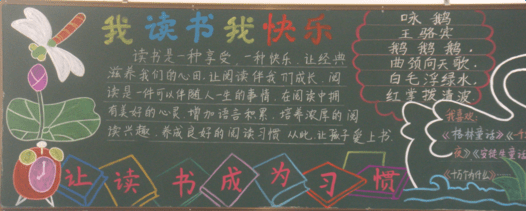 我读书我快乐
读书是一种享受,一种快乐.让经典
滋养我们的心田,让阅读伴我们成长.阅
读是一件可以伴随人一生的事情,在阅读中拥
有美好的心灵,增加语言积累,培养浓厚的阅
读兴趣,养成良好的阅读习惯.从此,让孩子爱上书.
让读书成为习惯
咏鹅
王骆宾
鹅鹅鹅,
曲颈向天歌.
白毛浮绿水,
红掌拨清波
我喜欢:
《格林童话》《一千
夜》《安徒生童话
《十万个为什么》